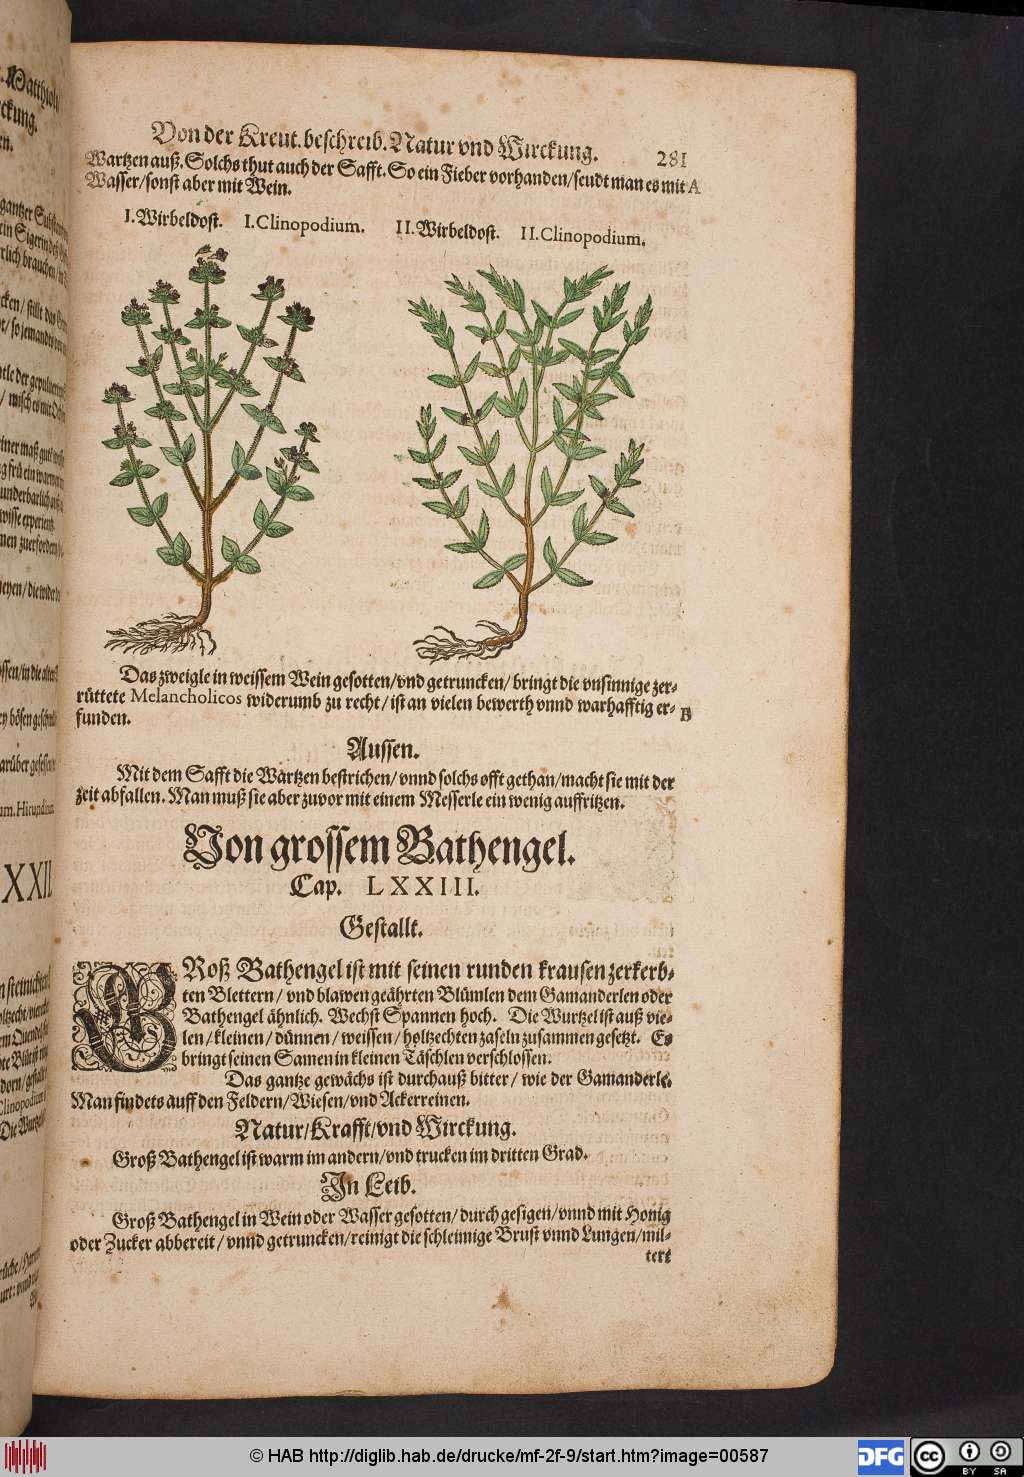 Von der Kreut. beschreib. Natur vnd Wirckung. 281
Wartzen auß. Solchs thut auch der Safft. So ein Fieber vorhanden/ seudt man es mit A
Wasser/ sonst aber mit Wein.
I. Wirbeldost. I. Clinopodium. II. Wirbeldost. II. Clinopodium.
Das zweigle in weissem Wein gesotten/ vnd getruncken/ bringt die vnsinnige zer-
rüttete Melancholicos widerumb zu recht/ ist an vielen bewerth vnnd warhafftig er- B
funden.
Aussen.
Mit dem Safft die Wartzen bestrichen/ vnnd solchs offt gethan/ macht sie mit der
zeit abfallen. Man muß sie aber zuvor mit einem Messerle ein wenig auffritzen.
Von grossem Bathengel.
Cap. LXXIII.
Gestallt.
GRoß Bathengel ist mit seinen runden krausen zerkerb-
ten Blettern/ vnd blawen geährten Blümlen dem Gamanderlen oder
Bathengel ähnlich. Wechst Spannen hoch. Die Wurtzel ist auß vie-
len/ kleinen/ dünnen/ weissen/ holtzechten zaseln zusammen gesetzt. Es
bringt seinen Samen in kleinen Täschlen verschlossen.
Das gantze gewächs ist durchauß bitter/ wie der Gamanderle.
Man findets auff den Feldern/ Wiesen/ vnd Ackerreinen.
Natur/ Krafft/ vnd Wirckung.
Groß Bathengel ist warm im andern/ vnd trucken im dritten Grad.
In Leib.
Groß Bathengel in Wein oder Wasser gesotten/ durch gesigen/ vnnd mit Honig
oder Zucker abbereit/ vnnd getruncken/ reinigt die schleimige Brust vnnd Lungen/ mil-
tert
XXII
© HAB http://diglib.hab.de/drucke/mf-2f-9/start.htm?image=00587
DFG
CC BY SA